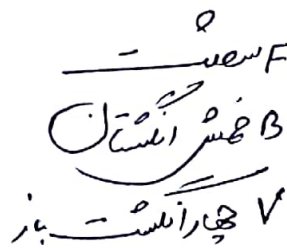 F
B خمش انگشتان
V چهار انگشت باز